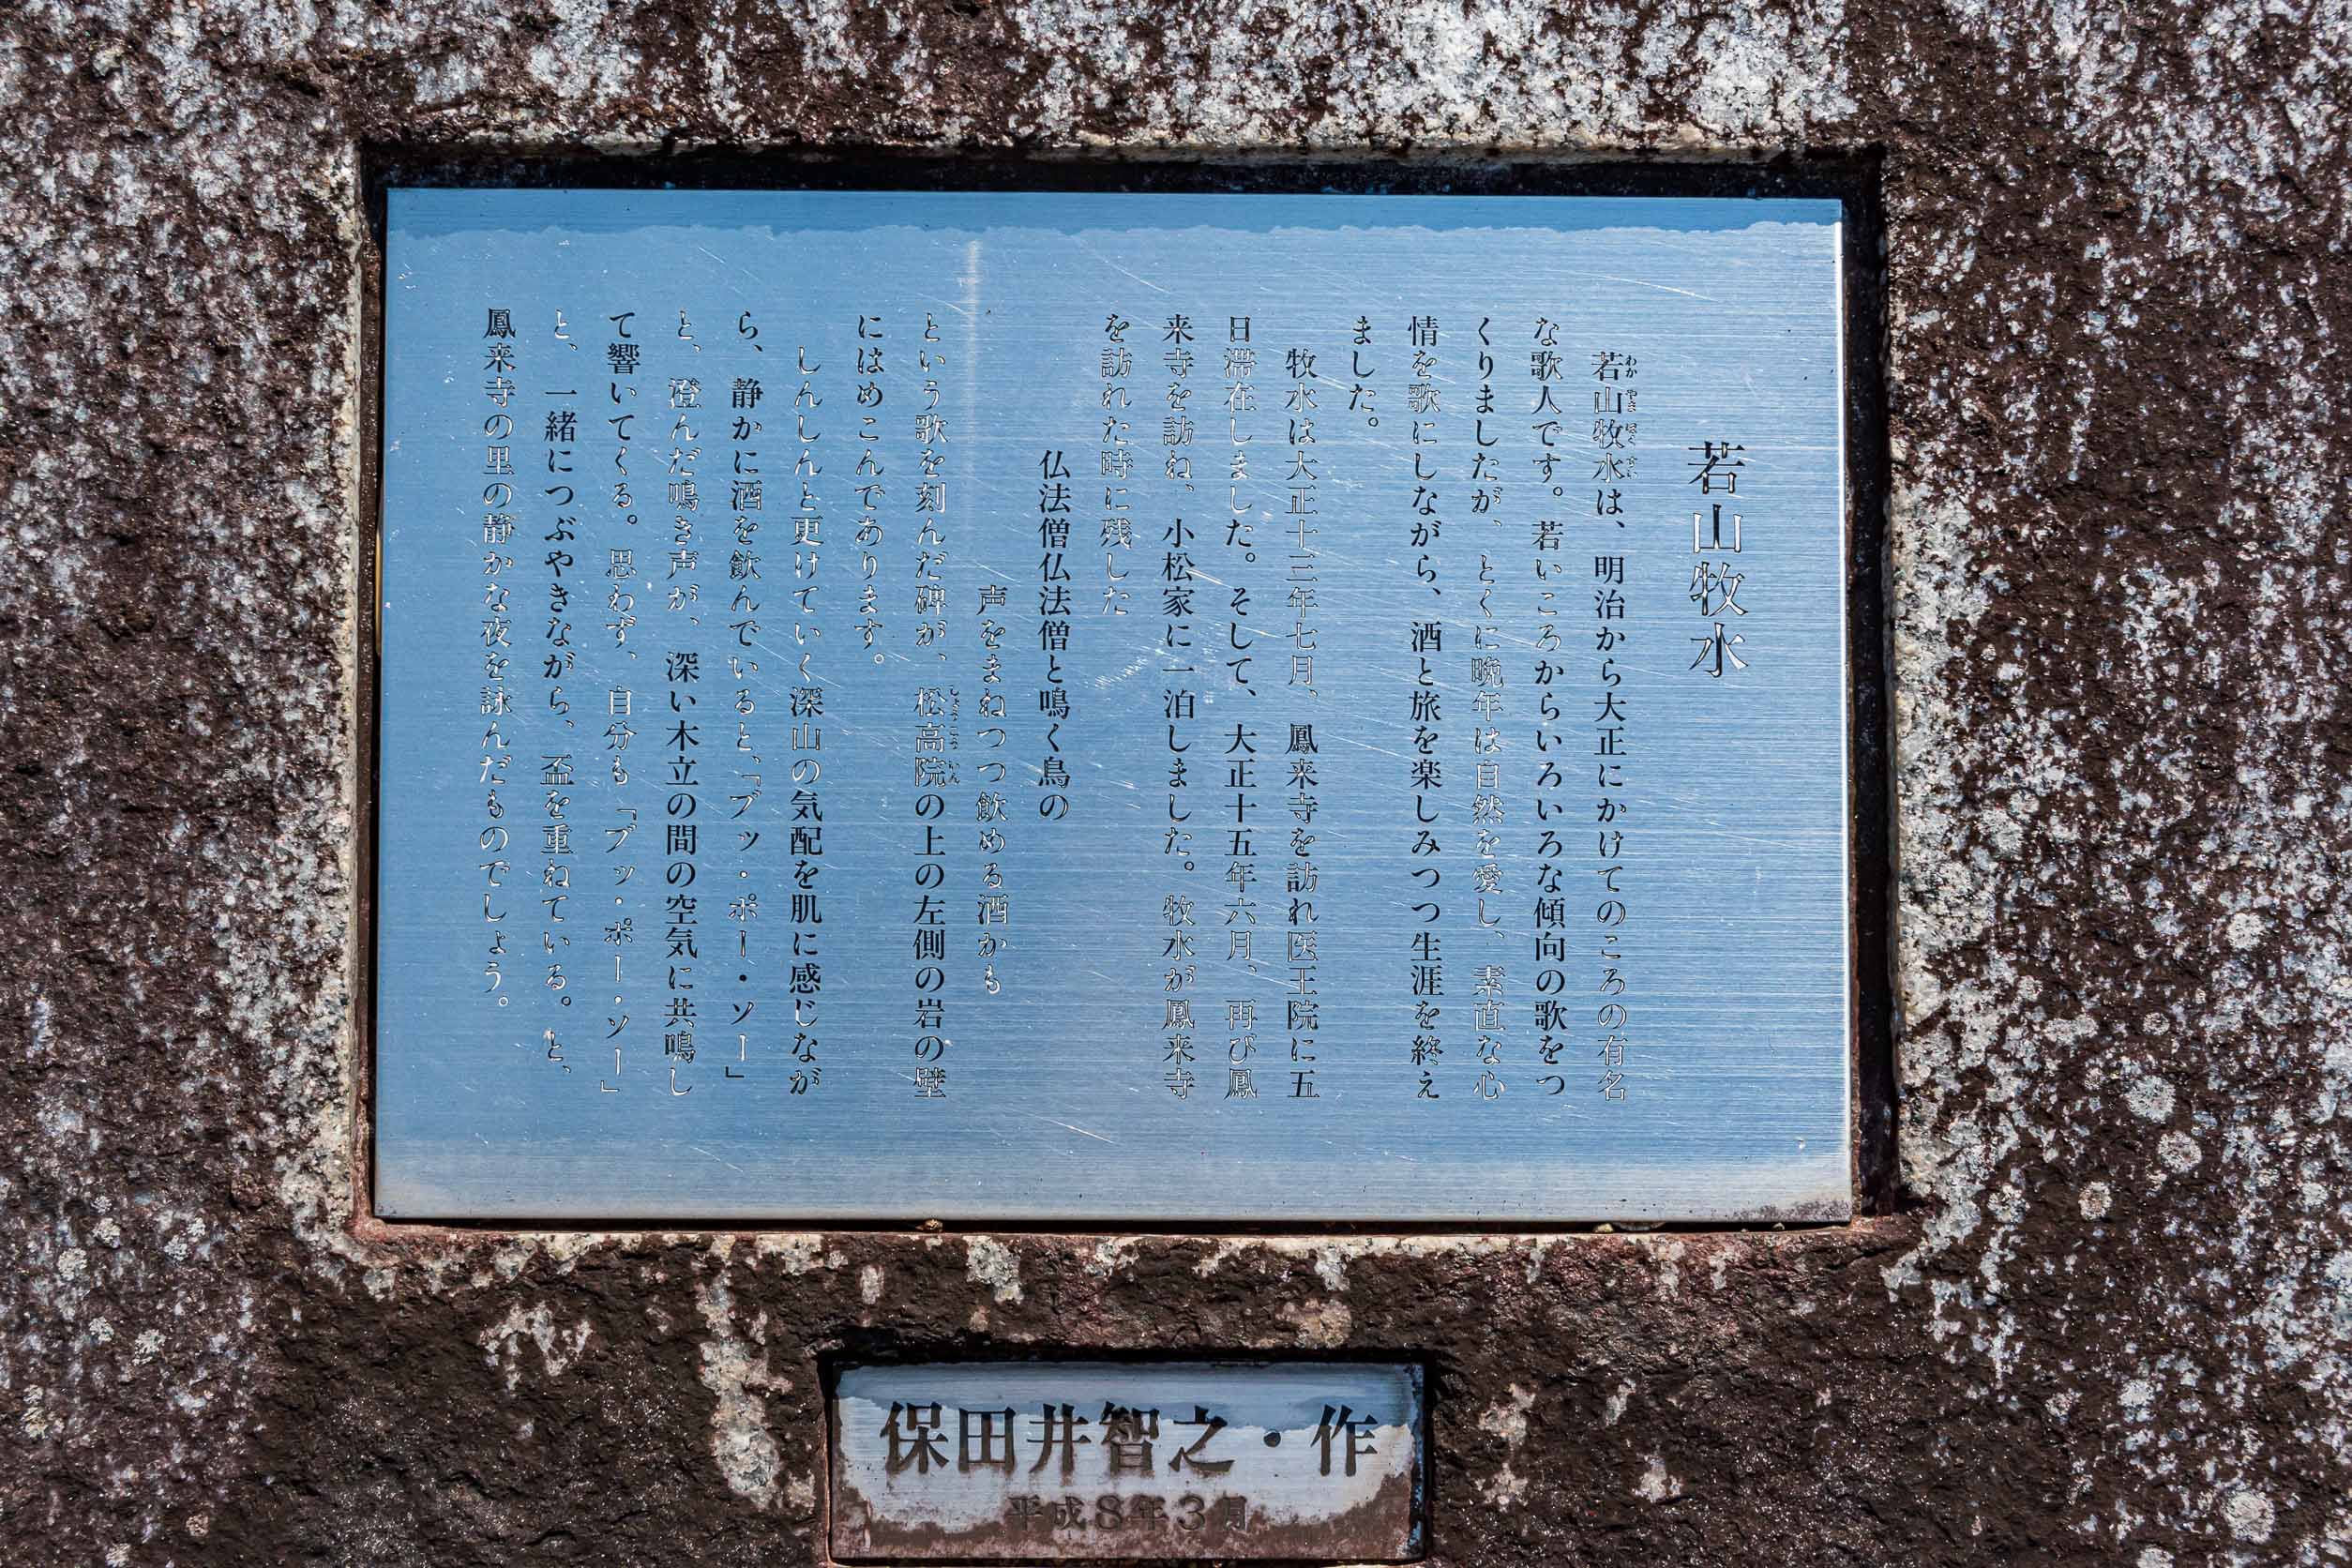 若山牧水
若山牧水は、明治から大正にかけてのころの有名
わかやまぼくすい
な歌人です。若いころからいろいろな傾向の歌をつ
くりましたが、とくに晩年は自然を愛し、素直な心
情を歌にしながら、酒と旅を楽しみつつ生涯を終え
ました。
牧水は大正十三年七月、鳳来寺を訪れ医王院に五
日滞在しました。そして、大正十五年六月、再び鳳
来寺を訪ね、小松家に一泊しました。牧水が鳳来寺
を訪れた時に残した
仏法僧仏法僧と鳴く鳥の
声をまねつつ飲める酒かも
という歌を刻んだ碑が、松高院の上の左側の岩の壁
しょうこういん
にはめこんであります。
しんしんと更けていく深山の気配を肌に感じなが
ら、静かに酒を飲んでいると、「ブッ・ポー・ソー」
と、澄んだ鳴き声が、深い木立の間の空気に共鳴し
て響いてくる。思わず、自分も「ブッ・ポー・ソー」
と、一緒につぶやきながら、盃を重ねている。と、
鳳来寺の里の静かな夜を詠んだものでしょう。
保田井智之・作
平成8年3月